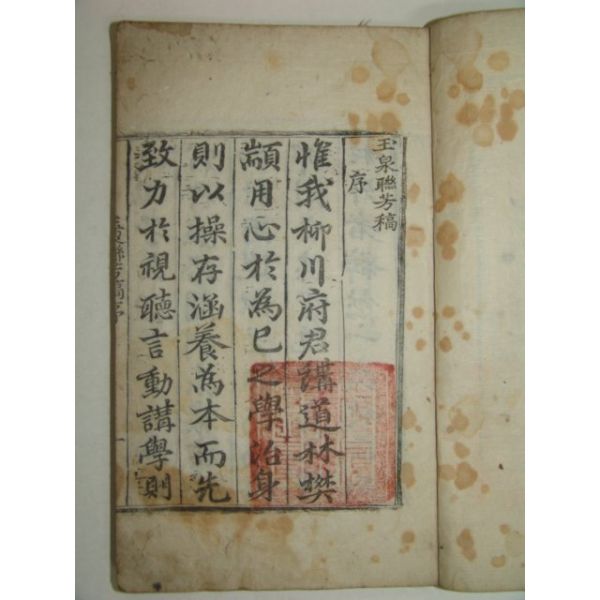 玉泉聯芳稿
序
惟我柳川府君講道林樊
顓用心於為己之學治身
則以操存涵養為本而先
致力於視聽言動講學則
玉泉聯芳稿序
一